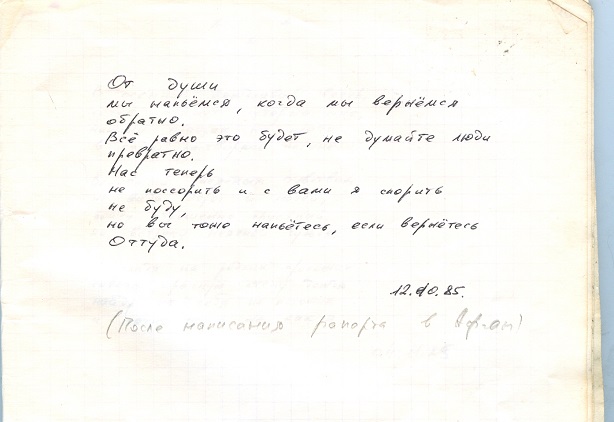 От души
мы напьёмся, когда мы вернёмся
обратно.
Всё равно это будет, не думайте люди
превратно.
Нас теперь
не поссорить и с вами я спорить
не буду,
но вы тоже напьётесь, если вернётесь
Оттуда.
12.10.85.
(После написания рапорта в Афган)